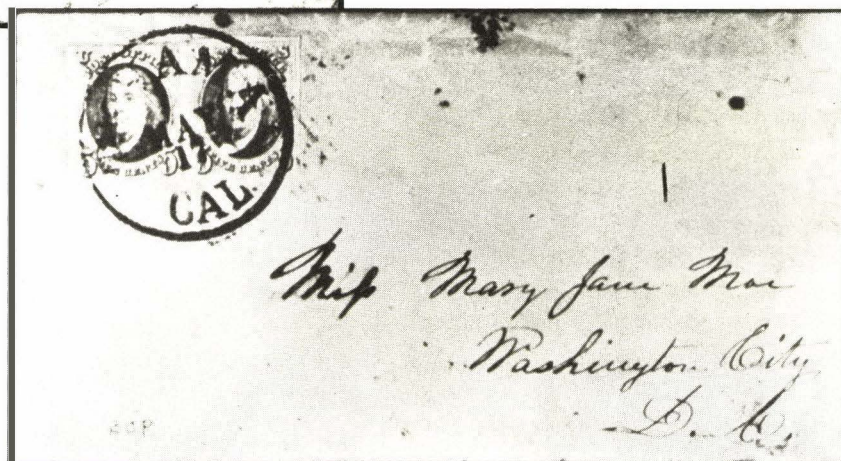 CAL.
Miss Mary Jane Moe
Washington City
D. C.